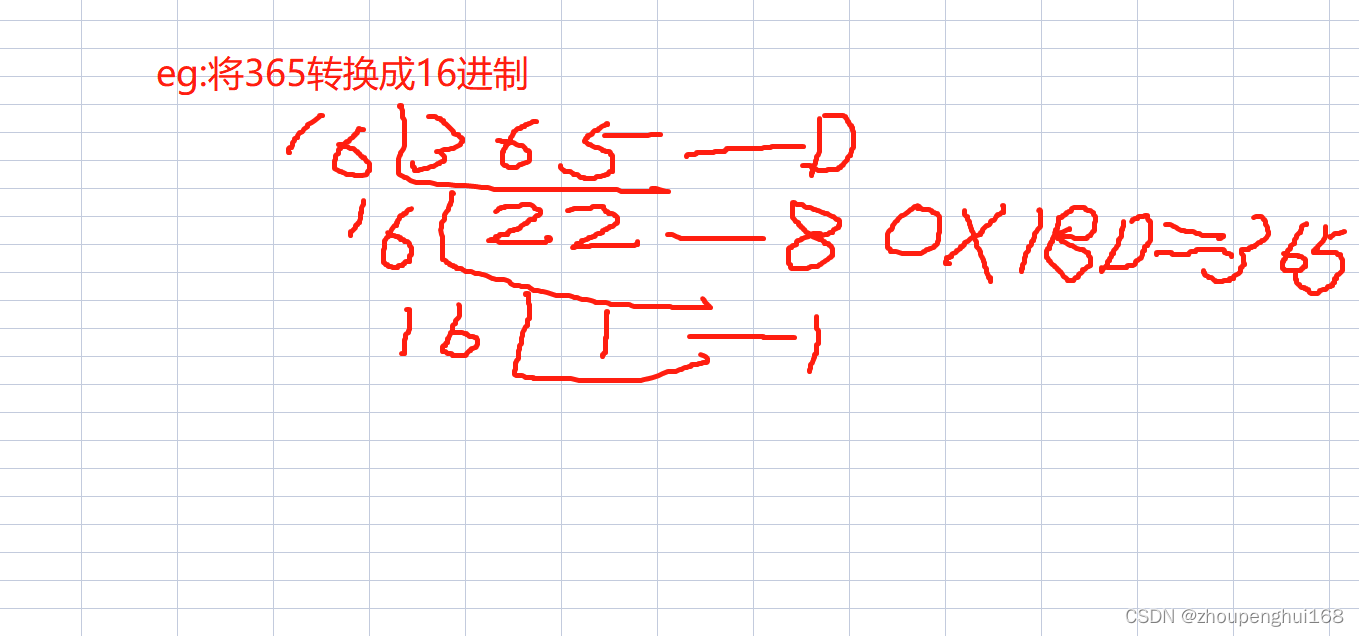 eg:将365转换成16进制
16 365 — D
16 22 — 8 0X18D=365
16 1 — 1
CSDN @zhoupenghui168